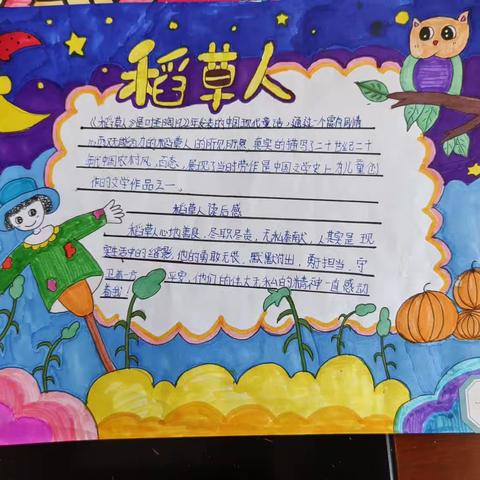 稻草人
《稻草人》是叶圣陶1922年发表的中国现代童话,通过一个富有同情
心而又无能为力的稻草人的所见所思,真实的描写了二十世纪二十
年代中国农村风 百态,展现了当时劳作是中国文学史上为儿童创
作的文学作品之一。
稻草人读后感
稻草人心地善良,尽职尽责,无私奉献,人其实是 现
实生活中的缩影,他的勇敢无畏、默默付出,勇担当,守
卫着一方 平安,他们的伟大无私的精神一直感动
着我!